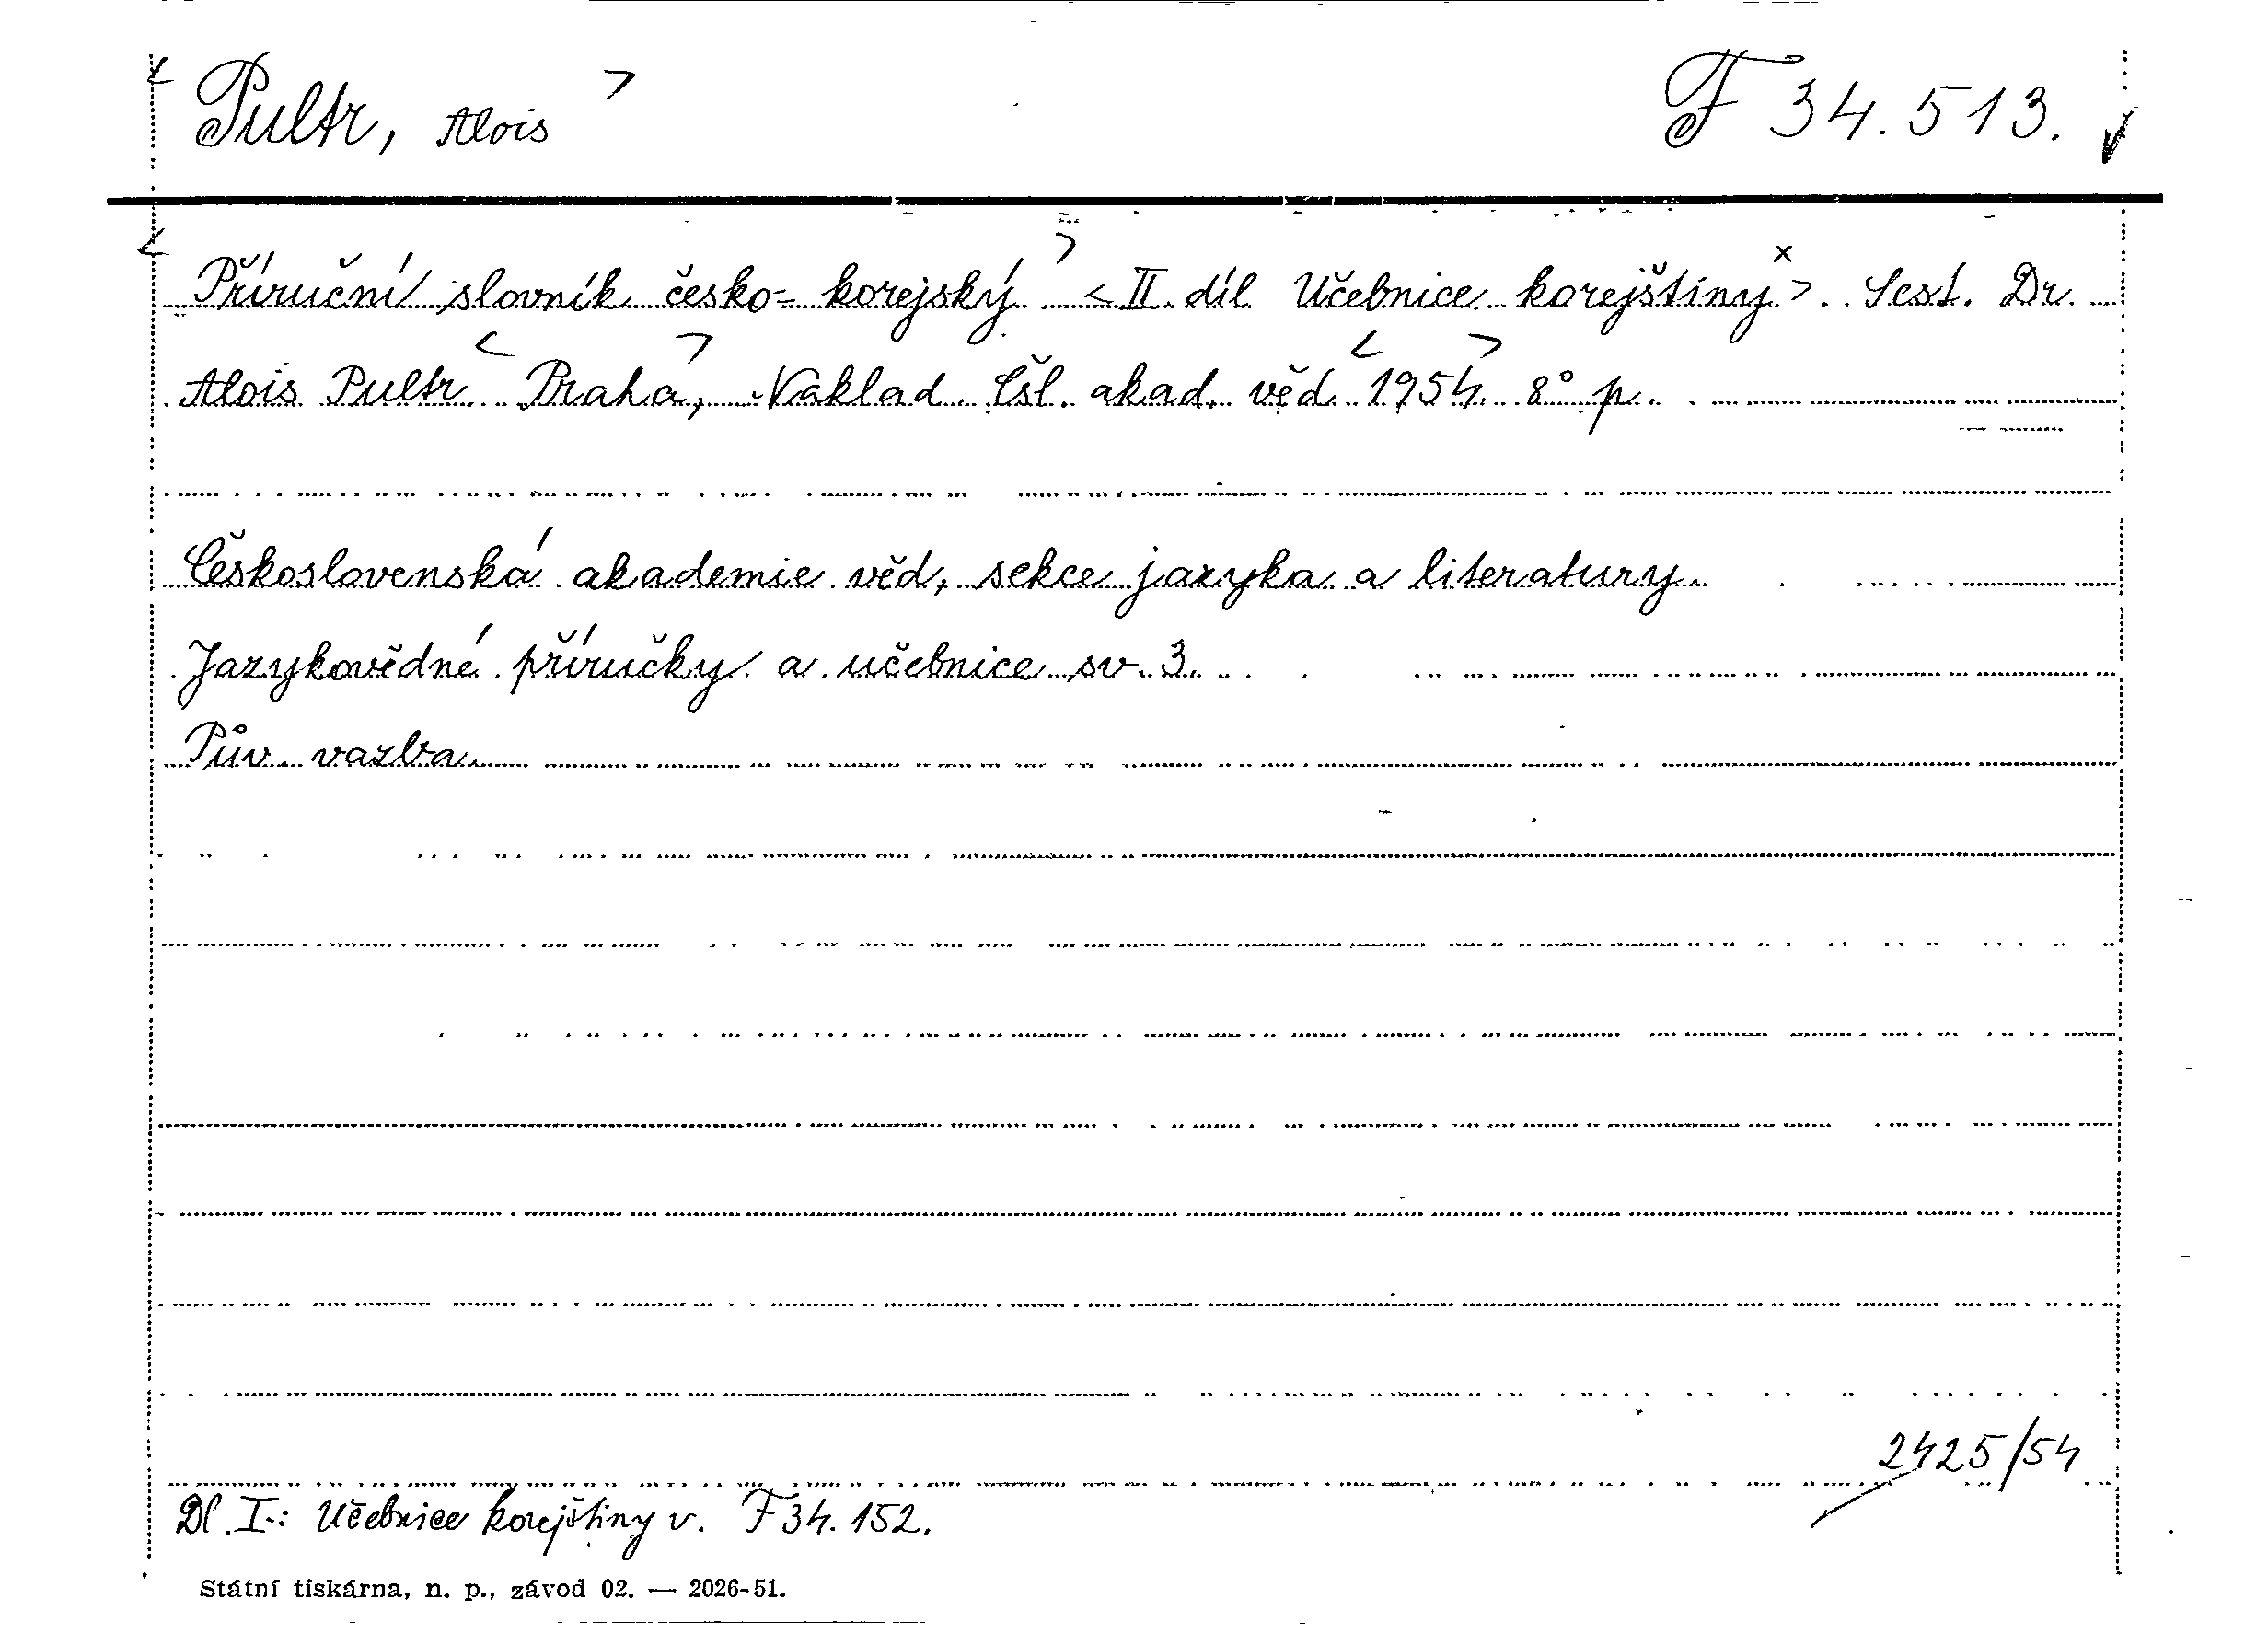 < Pultr, Alois > F 34.513.
< Příruční slovník česko-korejský > < II. díl Učebnice korejštiny x >. Sest. Dr.
Alois Pultr. < Praha >, Naklad. Čsl. akad. věd. < 1954 > 8° p.
Československá akademie věd, sekce jazyka a literatury.
Jazykovědné příručky a učebnice sv. 3.
Pův. vazba.
2425/54
Dl. I.: Učebnice korejštiny v. F 34.152.
Státní tiskárna, n. p., závod 02. — 2026-51.